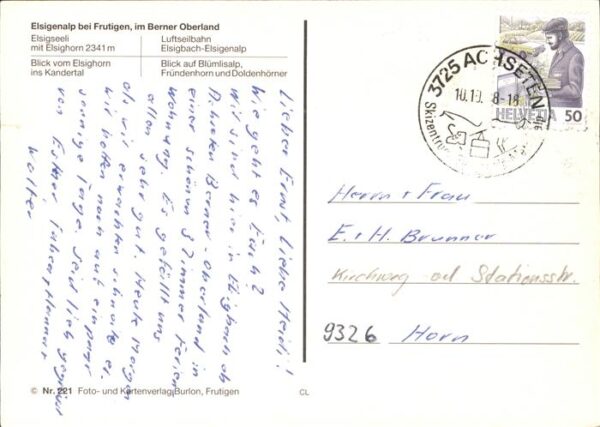 Elsigenalp bei Frutigen, im Berner Oberland
Elsigseeli
mit Elsighorn 2341 m
Luftseilbahn
Elsigbach-Elsigenalp
Blick vom Elsighorn
ins Kandertal
Blick auf Blümlisalp,
Fründenhorn und Doldenhörner
Lieber Ernst, liebe Heidi!
Wie geht es Euch?
Wir sind hier in
Berner-Oberland in
einer schönen 3 Zimmer Ferien
Wohnung. Es gefällt uns
allen sehr gut. Heute Morgen
als wir erwachten schneite es.
Wir hoffen noch auf ein paar
sonnige Tage. Seid lieb gegrüsst
von Esther,
Walter
© Nr. 221 Foto- und Kartenverlag Burlon, Frutigen
CL
3725 ACHSETEN
10.10. 8-18
Skizentrum
HELVETIA 50
Herrn + Frau
E. + H. Brunner
Kirchweg od Stationsstr.
9326 Horn